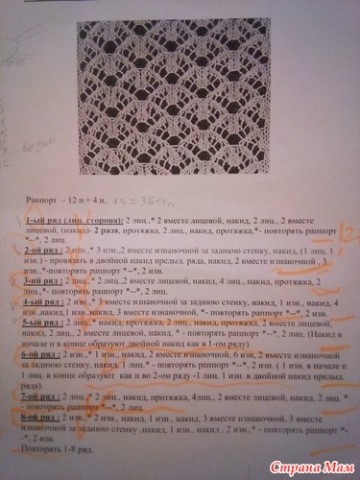 Раппорт – 12 п.+ 4 п.
1-ый ряд (лиц. сторона): 2 лиц.,* 2 вместе лицевой, накид, 2 лиц., 2 вместе
лицевой, (накид)- 2 раза, протяжка, 2 лиц., накид, протяжка,*- повторять раппорт
*--*, 2 лиц.
2-ой ряд : 2 изн.,* 3 изн.,2 вместе изнаночной за заднюю стенку, накид, (1 лиц, 1
изн.) - провязать в двойной накид предыд. ряда, накид, 2 вместе изнаночной , 3
изн.,*-повторять раппорт *--*, 2 изн.
3-ий ряд : 2 лиц.,* 2 лиц.,2 вместе лицевой, накид, 4 лиц., накид, протяжка, 2
лиц.,* - повторять раппорт *--*, 2 лиц.
4-ый ряд : 2 изн.,* 3 вместе изнаночной за заднюю стенку, накид, 1 изн., накид, 4
изн.,накид,1 изн.,накид, 3 вместе изнаночной, *- повторять раппорт *--*, 2 изн.
5-ый ряд : 2 лиц.,* накид, протяжка, 2 лиц., накид, протяжка, 2 вместе лицевой,
накид, 2 лиц., 2 вместе лицевой, накид, * - повторять раппорт *--*, 2 лиц. (Накид в
начале и в конце образуют двойной накид как в 1-ом ряду).
6-ой ряд : 2 изн.,* 1 изн., накид, 2 вместе изнаночной, 6 изн, 2 вместе изнаночной
за заднюю стенку, накид, 1 лиц.* - повторять раппорт *--*, 2 изн. ( 1 изн. в начале и
1 лиц. в конце образуют как и во 2-ом ряду -1 лиц, 1 изн. в двойной накид предыд.
ряда).
7-ой ряд : 2 лиц.,* 2 лиц., накид, протяжка, 4лиц., 2 вместе лицевой, накид, 2 лиц. *
- повторять раппорт *--*, 2 лиц.
8-ой ряд : 2 изн.,* 2 изн., накид, 1 изн., накид, 3 вместе изнаночной, 3 вместе
изнаночной за заднюю стенку ,накид, 1 изн., накид , 2 изн.,* - повторять раппорт *-
-*, 2 изн.
Повторять 1-8 ряд.
Страна Мам